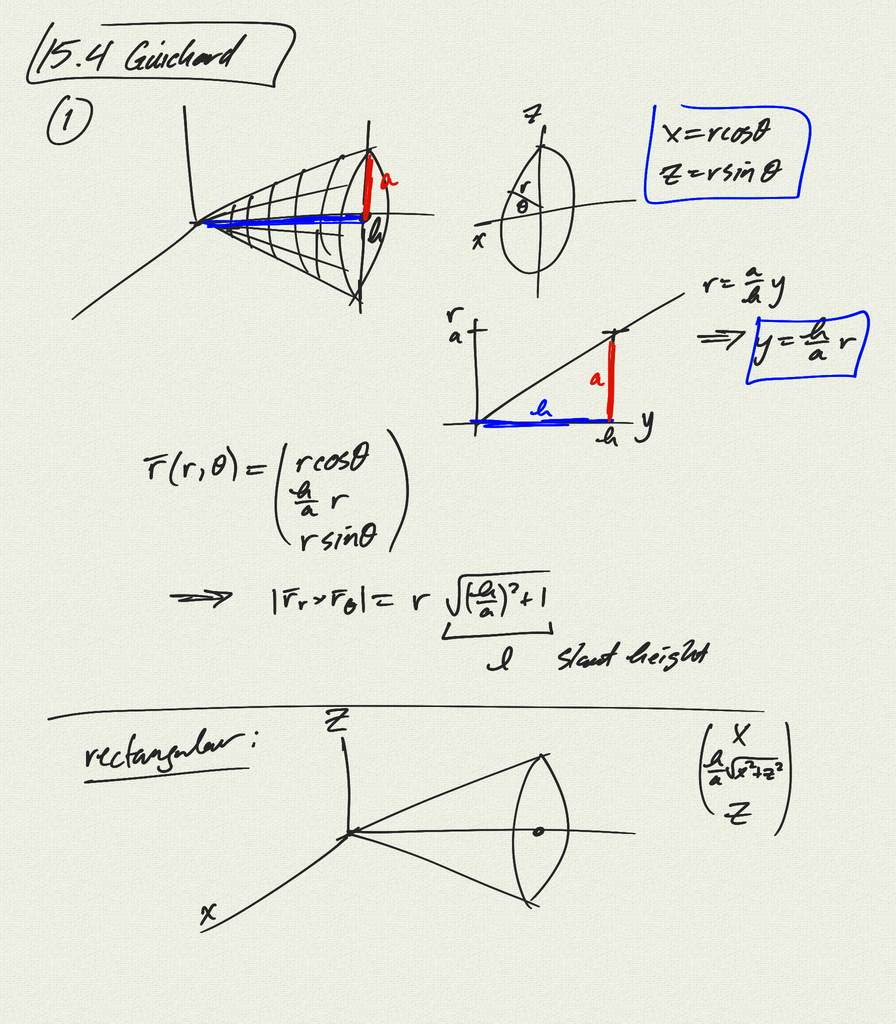 15.4 Guichard
①
a
h
z
r
θ
x
x = rcosθ
z = rsin θ
r
a
a
h
h
y
r = a/h y
⟹ y = h/a r
r̄(r, θ) = (rcosθ
h/a r
r sinθ)
⟹ |r̄r × r̄θ| = r √((h/a)² + 1)
l slant height
rectangular:
z
x
(x
h/a √x²+z²
z)